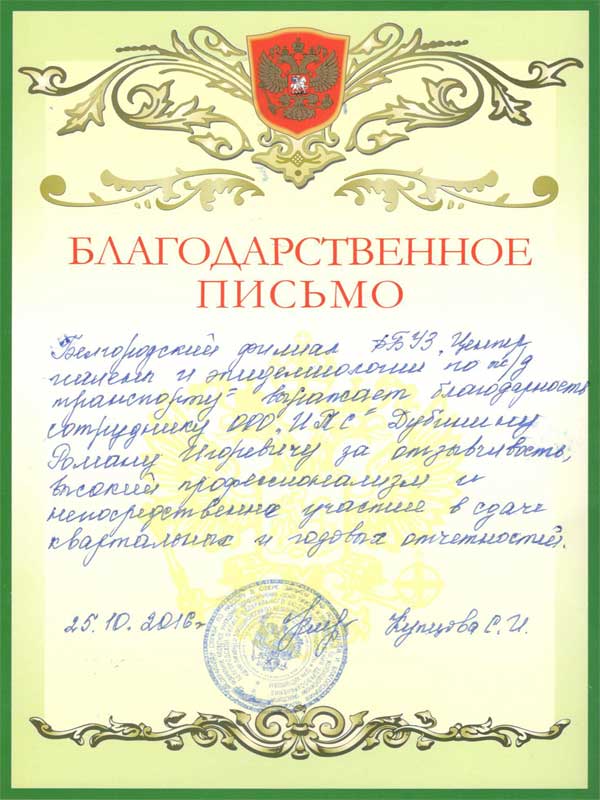 БЛАГОДАРСТВЕННОЕ
ПИСЬМО
Белгородский филиал ФБУЗ „Центр
гигиены и эпидемиологии по ж/д
транспорту" выражает благодарность
сотруднику ООО „ИТС" Дубинину
Роману Игоревичу за отзывчивость,
высокий профессионализм и
непосредственно участие в сдаче
квартальных и годовых отчетностей.
25.10.2016г Купцова С.И.